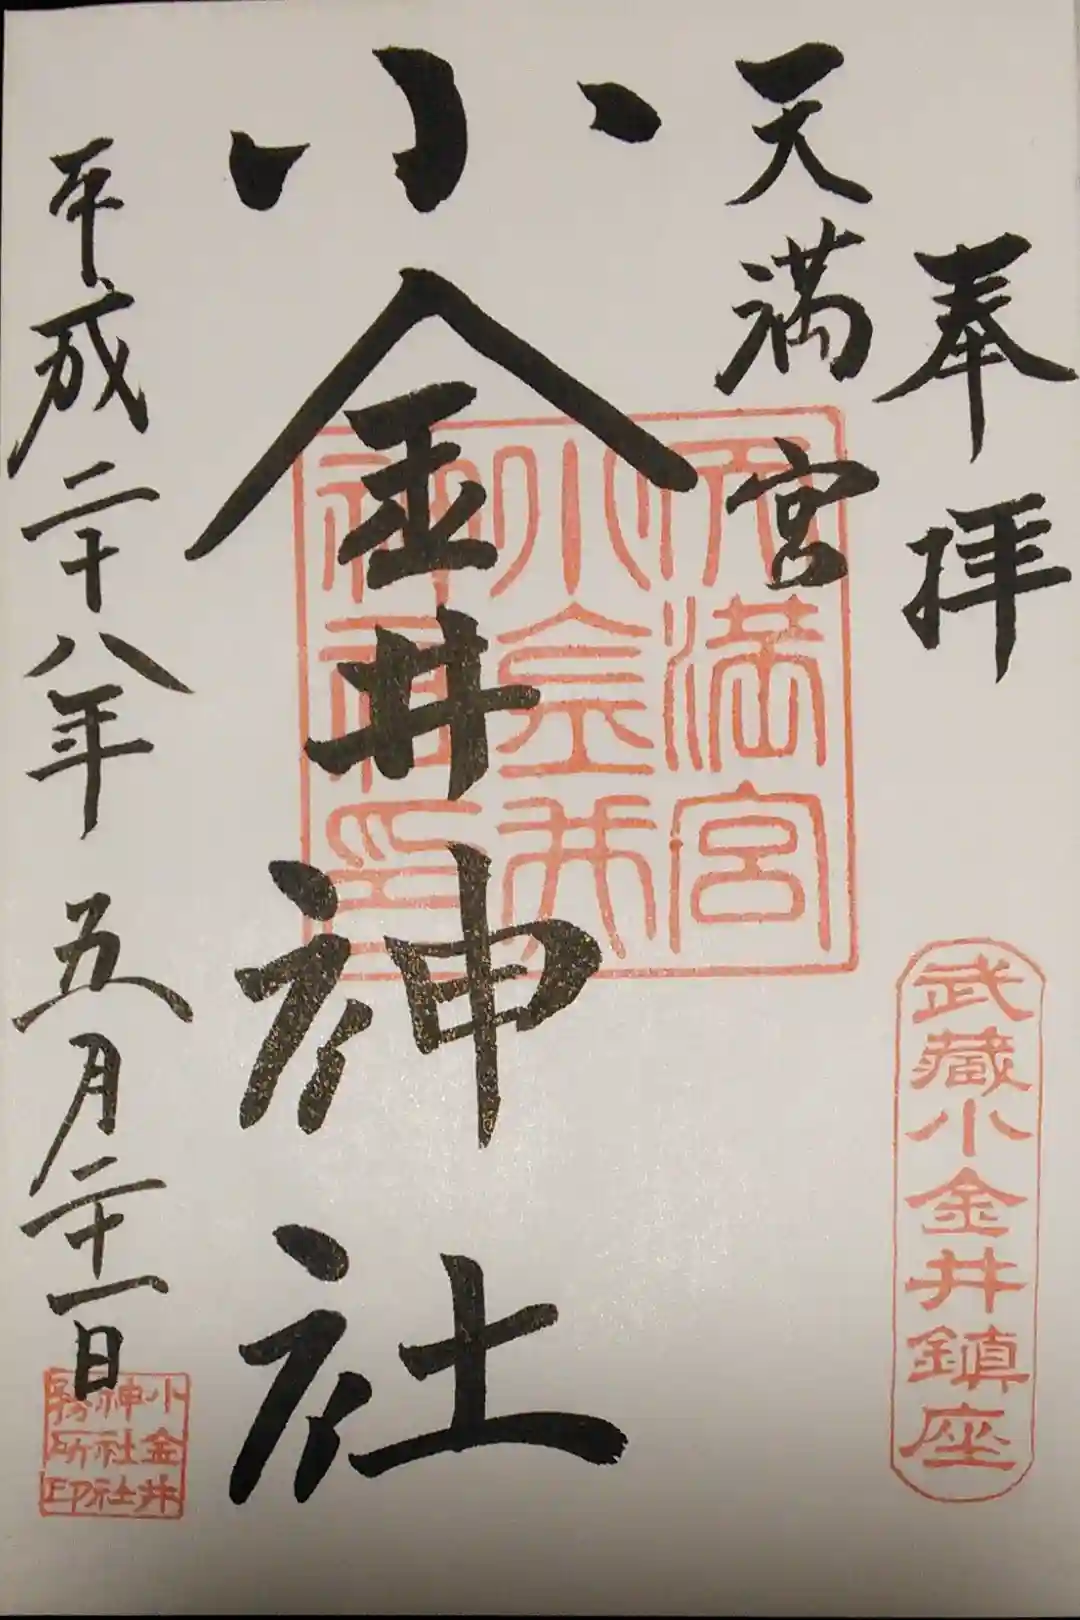 奉拝
天満宮
小金井神社
平成二十八年五月二十一日
天満宮
小金井
神社印
武蔵小金井鎮座
小金井
神社社
務所印